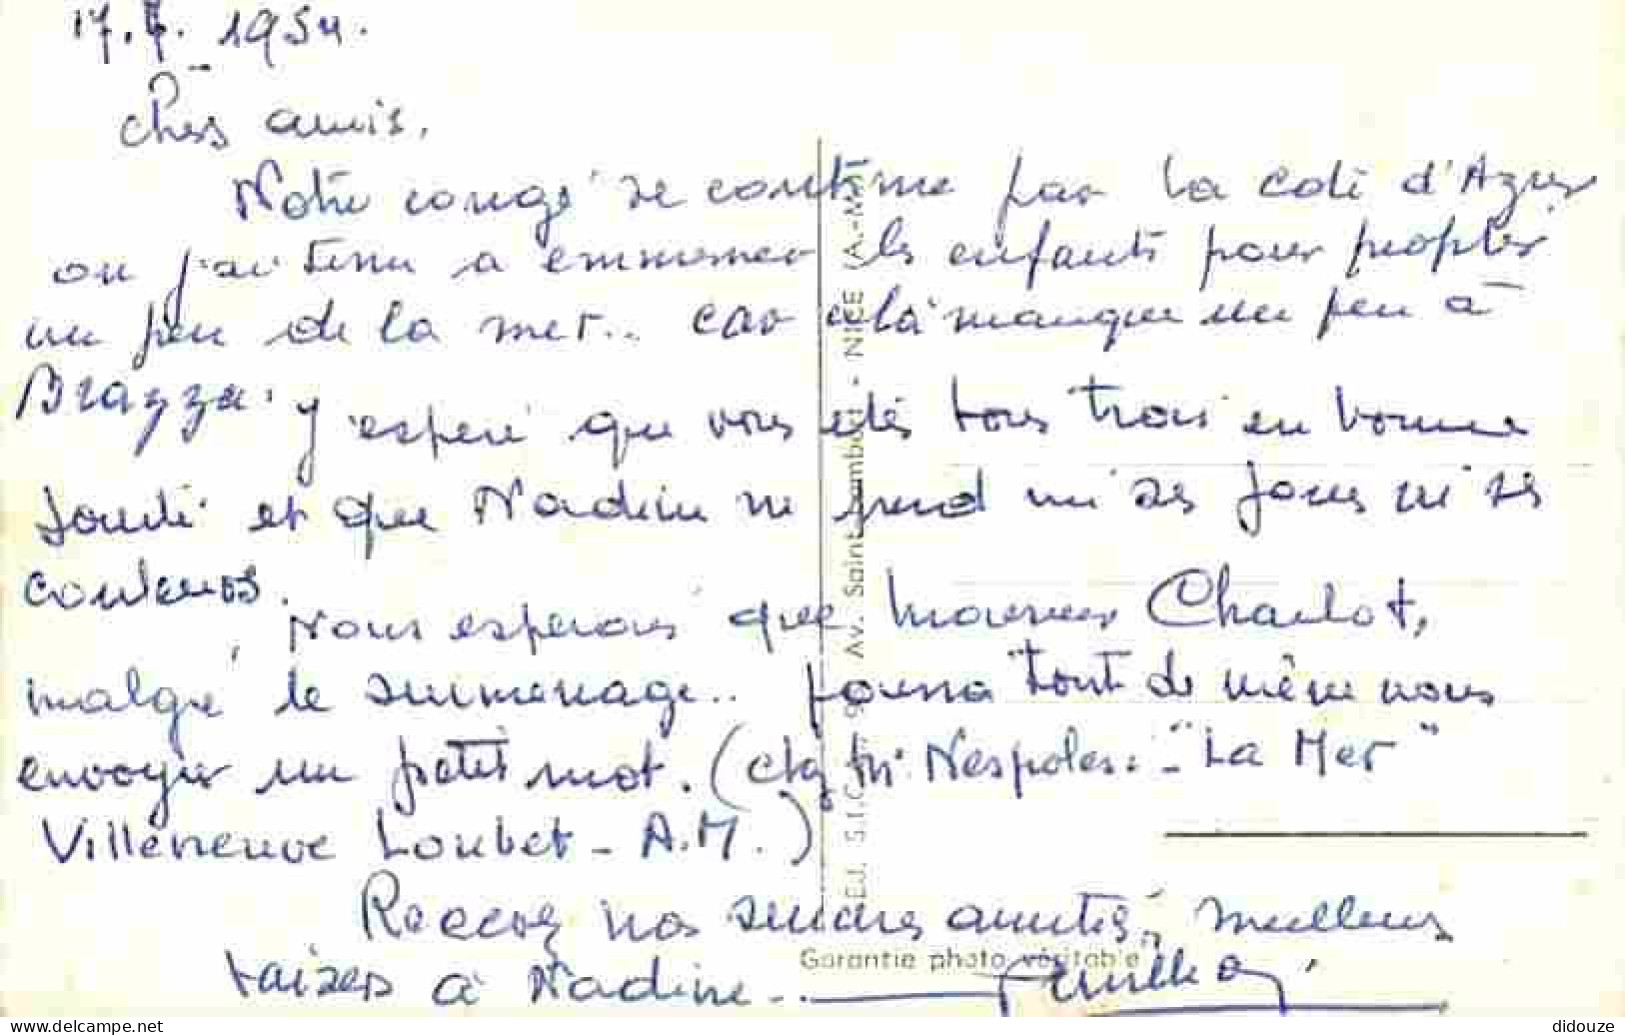 17.7.1954.
Chers amis.
Notre congé se continue par la cote d'Azur
ou j'ai tenu a emmener les enfants pour profiter
un peu de la mer.. car cela manque un peu à
Brazza. J'espère que vous etes tous trois en bonne
santé et que Nadine ne perd ni ses joues ni ses
couleurs.
Nous esperons que Charlot,
malgré le surmenage.. pourra tout de même nous
envoyer un petit mot. (chez Mr. Nespoles: - "La Mer"
Villeneuve Loubet - A.M.)
Recevez nos amitiés, meilleurs
baisers à Nadine..
Av. Saint-Lambert - NICE (A.-M.)
Garantie photo véritable
didouze
www.delcampe.net